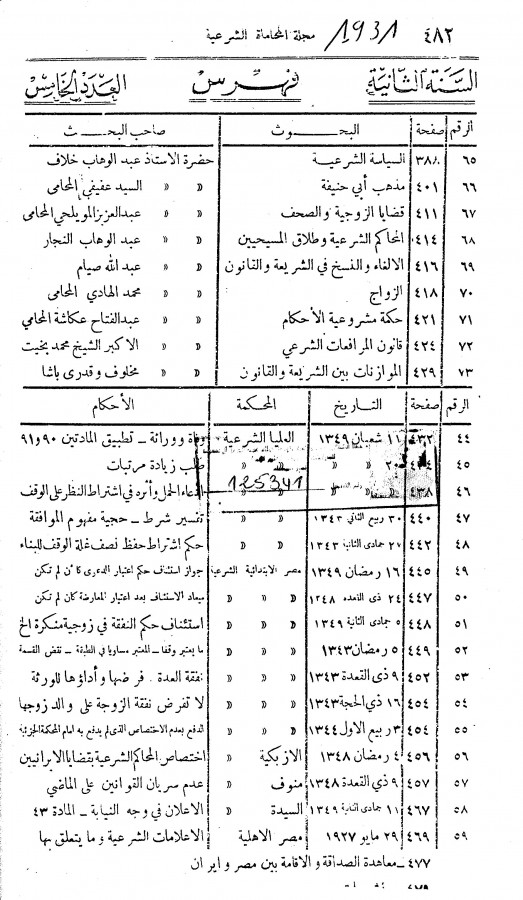 ٤٨٢ مجلة المحاماة الشرعية 1931
السنة الثانية فهرس العدد الخامس
الرقم صفحة البحوث صاحب البحث
٦٥ ٣٨٨ السياسة الشرعية حضرة الاستاذ عبد الوهاب خلاف
٦٦ ٤٠١ مذهب أبي حنيفة » » السيد عفيفي المحامي
٦٧ ٤١١ قضايا الزوجية والصحف » » عبدالعزيز المويلحي المحامى
٦٨ ٤١٤ المحاكم الشرعية وطلاق المسيحيين » » عبد الوهاب النجار
٦٩ ٤١٦ الالغاء والنسخ في الشريعة والقانون » » عبد الله صيام
٧٠ ٤١٨ الزواج » » محمد الهادي المحامى
٧١ ٤٢١ حكمة مشروعية الأحكام » » عبدالفتاح عكاشة المحامي
٧٢ ٤٢٤ قانون المرافعات الشرعي » » الاكبر الشيخ محمد بخيت
٧٣ ٤٢٩ الموازنات بين الشريعة والقانون » » مخلوف وقدرى باشا
الرقم صفحة التاريخ المحكمة الأحكام
٤٤ ٤٣٢ ١١ شعبان ١٣٤٩ العليا الشرعية وفاة ووراثة – تطبيق المادتين ٩٠ و٩١
٤٥ ٢٠ » » طلب زيادة مرتبات
٤٦ ٤٣٨ » » ادعاء الحمل وأثره في اشتراط النظر على الوقف
125341
٤٧ ٤٤٠ ٣٠ ربيع الثاني ١٣٤٣ » » تفسير شرط – حجية مفهوم الموافقة
٤٨ ٤٤٢ ٢٧ جمادى الثانية ١٣٤٣ » » حكم اشتراط حفظ نصف غلة الوقف للبناء
٤٩ ٤٤٥ ١٦ رمضان ١٣٤٩ مصر الابتدائية الشرعية جواز استئناف حكم اعتبار الدعوى كأن لم تكن
٥٠ ٤٤٧ ٢٤ ذى القعده ١٣٤٨ » » » ميعاد الاستئناف بعد اعتبار المعارضة كأن لم تكن
٥١ ٤٤٨ ٥ جمادى الثانية ١٣٤٩ » » » استئناف حكم النفقة في زوجية منكرة الخ
٥٢ ٤٤٩ ٥ رمضان ١٣٤٣ » » » ما يعتبر وقفا – للمعتبر مساويا في الطبقة – نقض القسمة
٥٣ ٤٥٢ ٩ ذى القعدة ١٣٤٣ » » » نفقة العدة . فرضها وأداؤها للورثة
٥٤ ٤٥٤ ١٦ ذي الحجة ١٣٤٣ » » » لا تفرض نفقة الزوجة على والد زوجها
٥٥ ٤٥٤ ٣ ربيع الاول ١٣٤٤ » » » الدفع بعدم الاختصاص الذى لم يدفع به امام المحكمة الجزئية
٥٦ ٤٥٦ ٤ رمضان ١٣٤٨ الازبكية » اختصاص المحاكم الشرعية بقضايا الايرانيين
٥٧ ٤٥٧ ٩ ذي القعدة ١٣٤٨ منوف » عدم سريان القوانين على الماضي
٥٨ ٤٦٧ ١١ جمادى الثانية ١٣٤٩ السيدة » الاعلان في وجه النيابة – المادة ٤٣
٥٩ ٤٦٩ ٢٩ مايو ١٩٢٧ مصر الاهلية الاعلامات الشرعية وما يتعلق بها
٤٧٧ – معاهدة الصداقة والاقامة بين مصر وايران